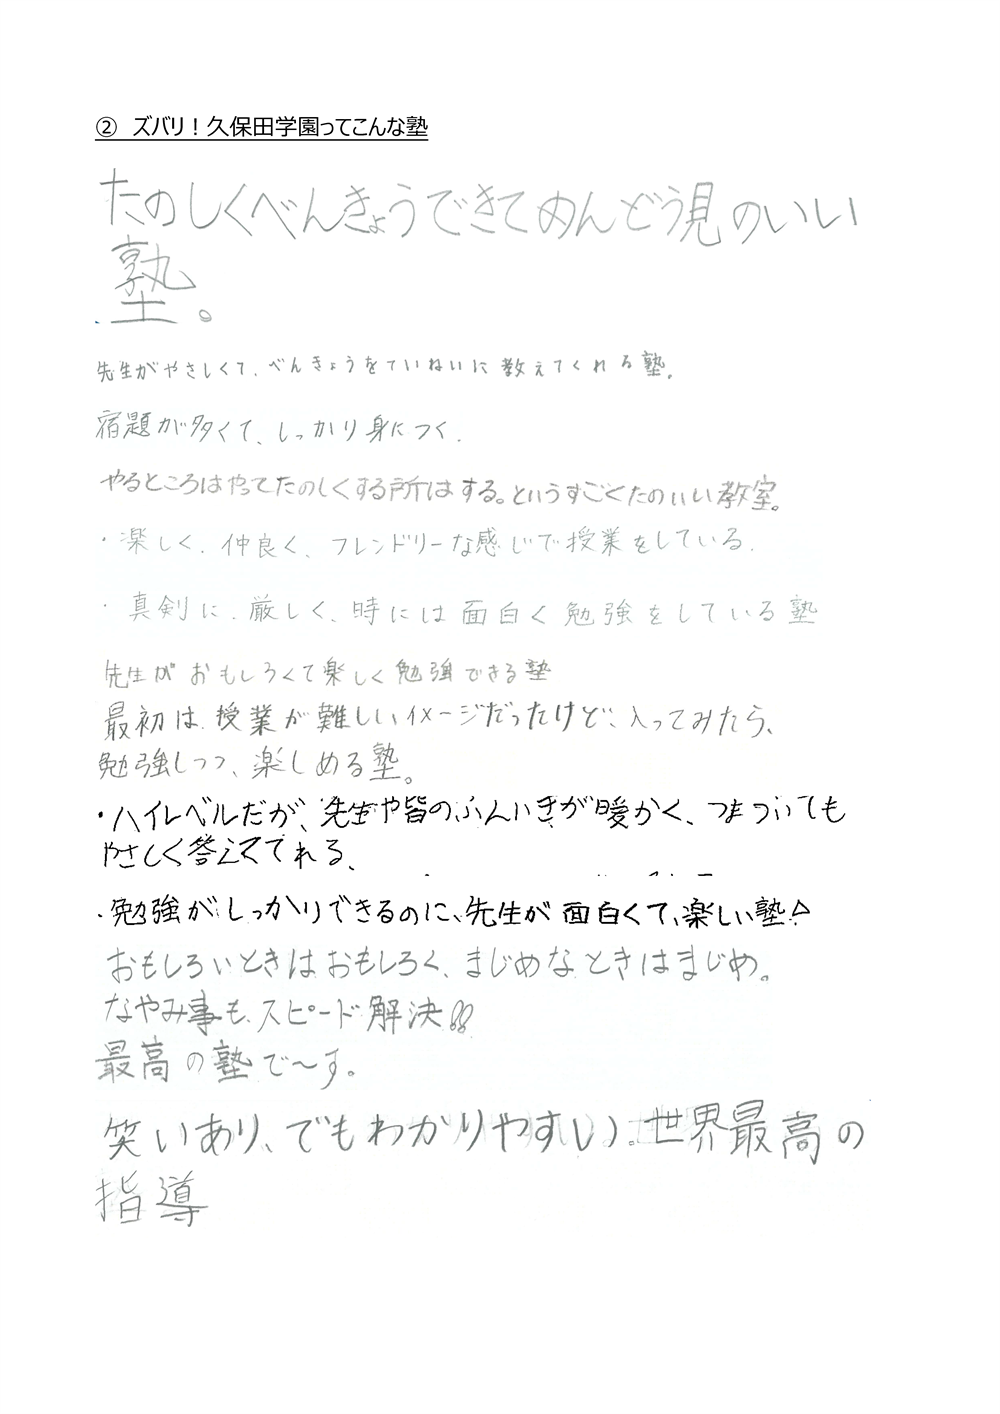 ② ズバリ！久保田学園ってこんな塾
たのしくべんきょうできてめんどう見のいい
塾。
先生がやさしくて、べんきょうをていねいに教えてくれる塾。
宿題が多くて、しっかり身につく.
やるところはやってたのしくする所はする。というすごくたのいい教室。
・楽しく、仲良く、フレンドリーな感じで授業をしている.
・真剣に、厳しく、時には面白く勉強をしている塾
先生がおもしろくて楽しく勉強できる塾
最初は、授業が難しいイメージだったけど、入ってみたら、
勉強しつつ、楽しめる塾。
・ハイレベルだが、先生や皆のふんいきが暖かく、つまづいても
やさしく答えてくれる、
・勉強がしっかりできるのに、先生が面白くて、楽しい塾!
おもしろいときはおもしろく、まじめなときはまじめ。
なやみ事も、スピード解決!!
最高の塾で〜す。
笑いあり、でもわかりやすい。世界最高の
指導